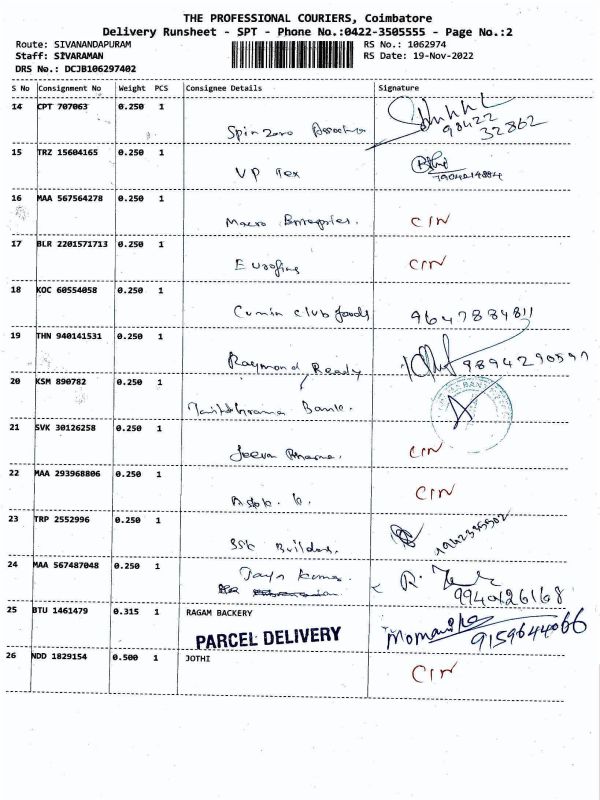 THE PROFESSIONAL COURIERS, Coimbatore
Delivery Runsheet - SPT - Phone No.:0422-3505555 - Page No.:2
Route: SIVANANDAPURAM RS No.: 1062974
Staff: SIVARAMAN RS Date: 19-Nov-2022
DRS No.: DCJB106297402
S No Consignment No Weight PCS Consignee Details Signature
14 CPT 707063 0.250 1
Spinzero 98422
32862
15 TRZ 15604165 0.250 1
VP Tex
16 MAA 567564278 0.250 1
Macro Enterprises. CIN
17 BLR 2201571713 0.250 1
Eurofins CIN
18 KOC 60554058 0.250 1
Cumin club foods 9647884811
19 THN 940141531 0.250 1
Raymond Ready
20 KSM 890782 0.250 1
Bank.
21 SVK 30126258 0.250 1
Jeeva Pharma. CIN
22 MAA 293968806 0.250 1
CIN
23 TRP 2552996 0.250 1
SSK Builders.
24 MAA 567487048 0.250 1
Jaya Kumar
9940126168
25 BTU 1461479 0.315 1 RAGAM BACKERY
PARCEL DELIVERY 9159644066
26 NDD 1829154 0.500 1 JOTHI
CIN